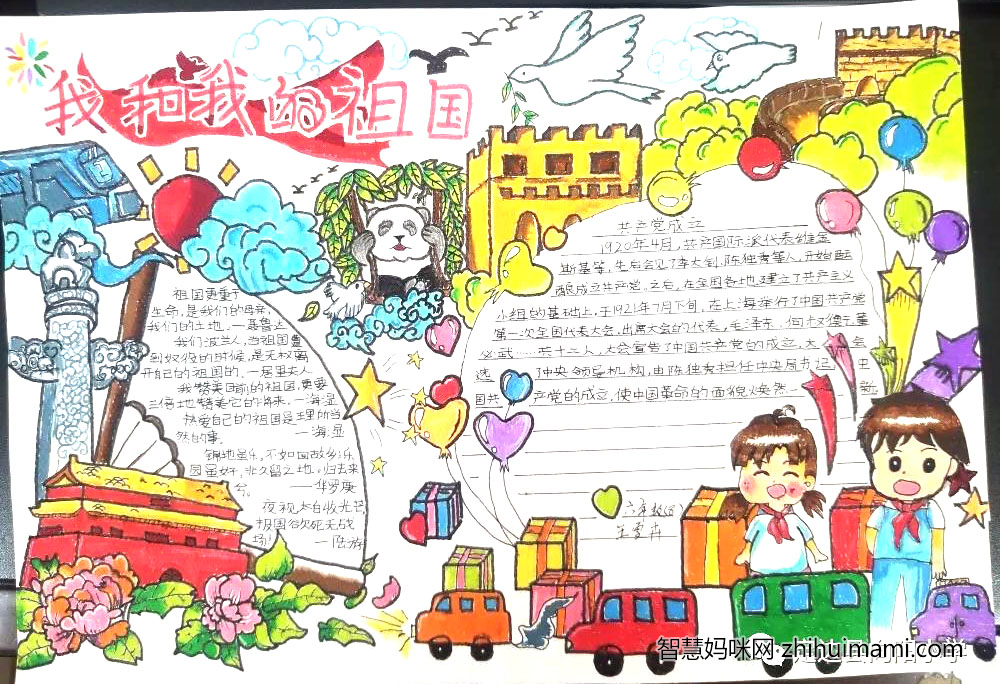 我和我的祖国
祖国更重于
生命,是我们的母亲,
我们的土地。—聂鲁达
我们波兰人,当祖国遭
到奴役的时候,是无权离
开自己的祖国的。—居里夫人
我赞美目前的祖国,更要
三倍地赞美它的将来。—海涅
热爱自己的祖国是理所当
然的事。—海涅
锦城虽乐,不如回故乡;乐
园虽好,非久留之地。归去来
兮。—华罗庚
夜视太白收光芒
报国欲死无战
场!—陆游
共产党成立
1920年4月,共产国际派代表维金
斯基等,先后会见了李大钊、陈独秀等人,开始酝
酿成立共产党。之后,在全国各地建立了共产主义
小组的基础上,于1921年7月下旬,在上海举行了中国共产党
第一次全国代表大会,出席大会的代表,毛泽东、何叔衡、董
必武……共十三人,大会宣告了中国共产党的成立。大会
选 了中央领导机构,由陈独秀担任中央局书记。中
国共产党的成立,使中国革命的面貌焕然一新。
六年级(5)
智慧妈咪网 zhihuimami.com